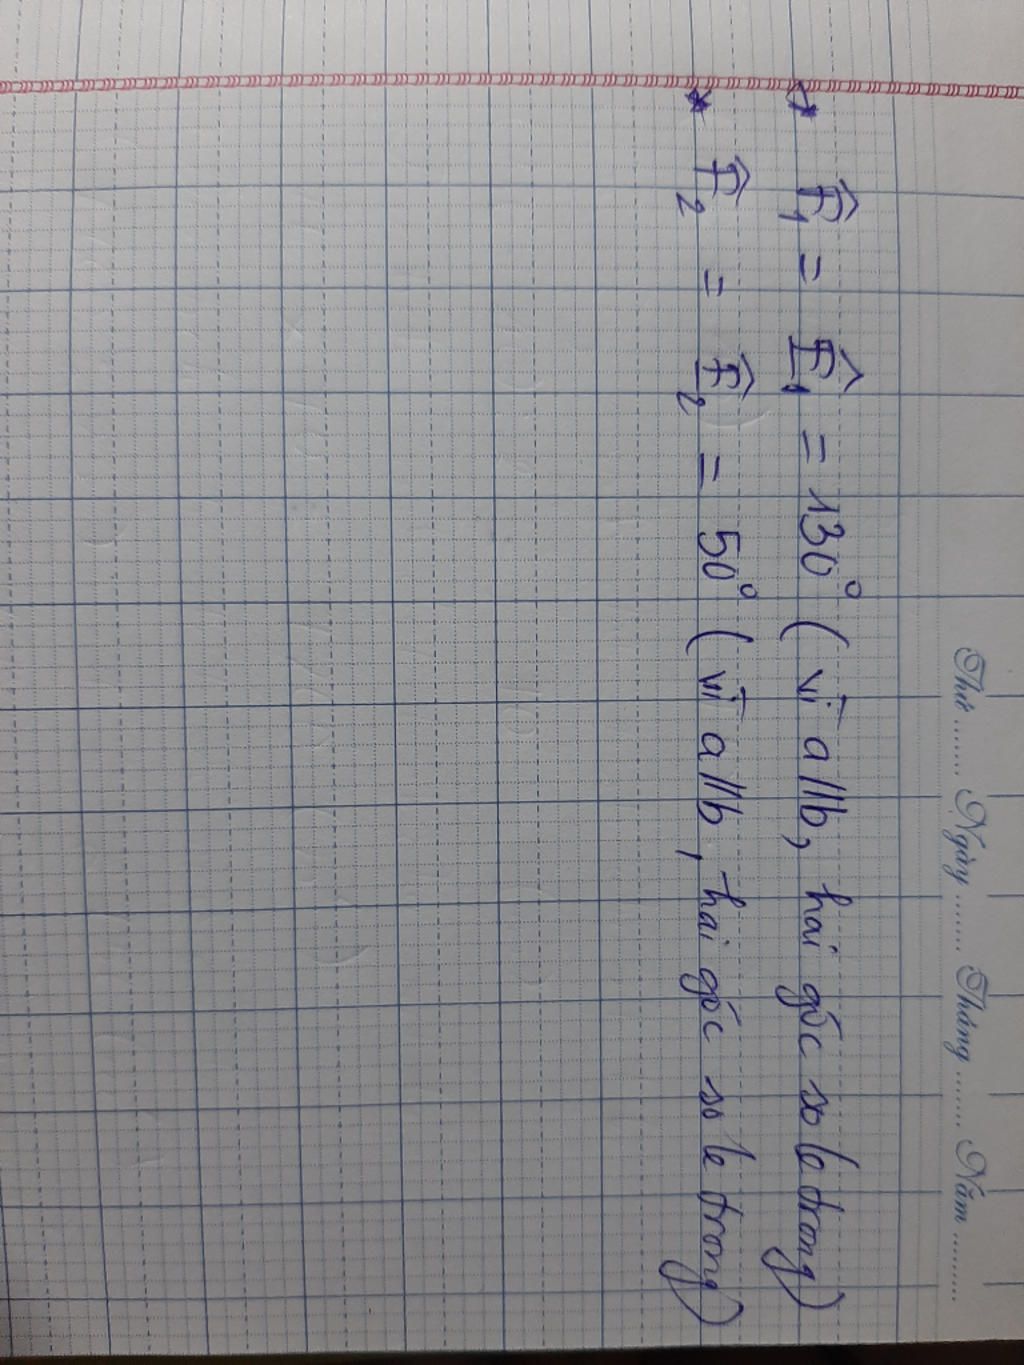 Thứ ....... Ngày ....... Tháng ....... Năm .........
* F̂₁ = Ê₁ = 130° (vì a//b, hai góc so le trong)
* F̂₂ = F̂₂ = 50° (vì a//b, hai góc so le trong)